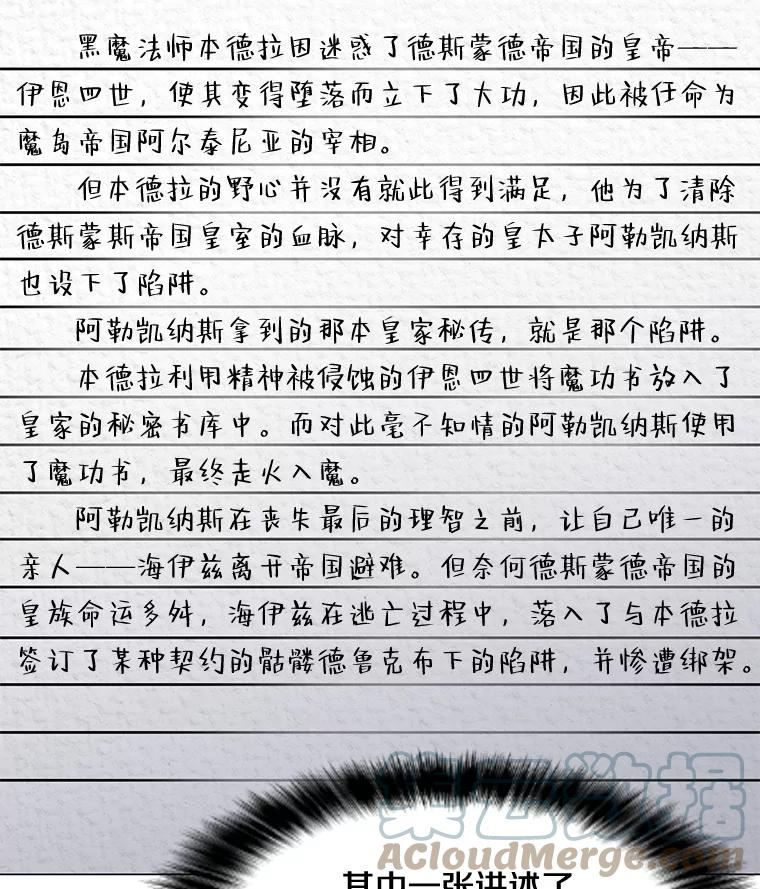 黑魔法师本德拉因迷惑了德斯蒙德帝国的皇帝——
伊恩四世，使其变得堕落而立下了大功，因此被任命为
魔岛帝国阿尔泰尼亚的宰相。
但本德拉的野心并没有就此得到满足，他为了清除
德斯蒙斯帝国皇室的血脉，对幸存的皇太子阿勒凯纳斯
也设下了陷阱。
阿勒凯纳斯拿到的那本皇家秘传，就是那个陷阱。
本德拉利用精神被侵蚀的伊恩四世将魔功书放入了
皇家的秘密书库中。而对此毫不知情的阿勒凯纳斯使用
了魔功书，最终走火入魔。
阿勒凯纳斯在丧失最后的理智之前，让自己唯一的
亲人——海伊兹离开帝国避难。但奈何德斯蒙德帝国的
皇族命运多舛，海伊兹在逃亡过程中，落入了与本德拉
签订了某种契约的骷髅德鲁克布下的陷阱，并惨遭绑架。
聚云数据
ACloudMerge.com
其中一张讲述了